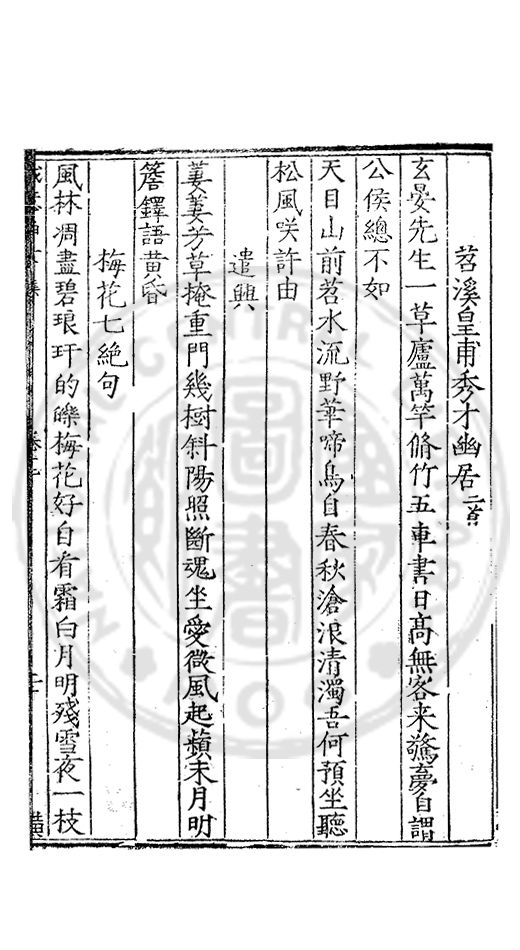 苕溪皇甫秀才幽居二首
玄晏先生一草廬萬竿脩竹五車書日高無客来驚夢自謂
公侯總不如
天目山前苕水流野華啼鳥自春秋滄浪清濁吾何預坐聽
松風咲許由
遣興
萋萋芳草掩重門幾樹斜陽照斷魂坐愛微風起蘋末月明
簷鐸語黄昏
梅花七絶句
風林凋盡碧琅玕的皪梅花好自看霜白月明殘雪夜一枝